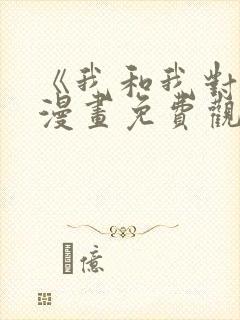 《我和我對
漫畫免費觀
億